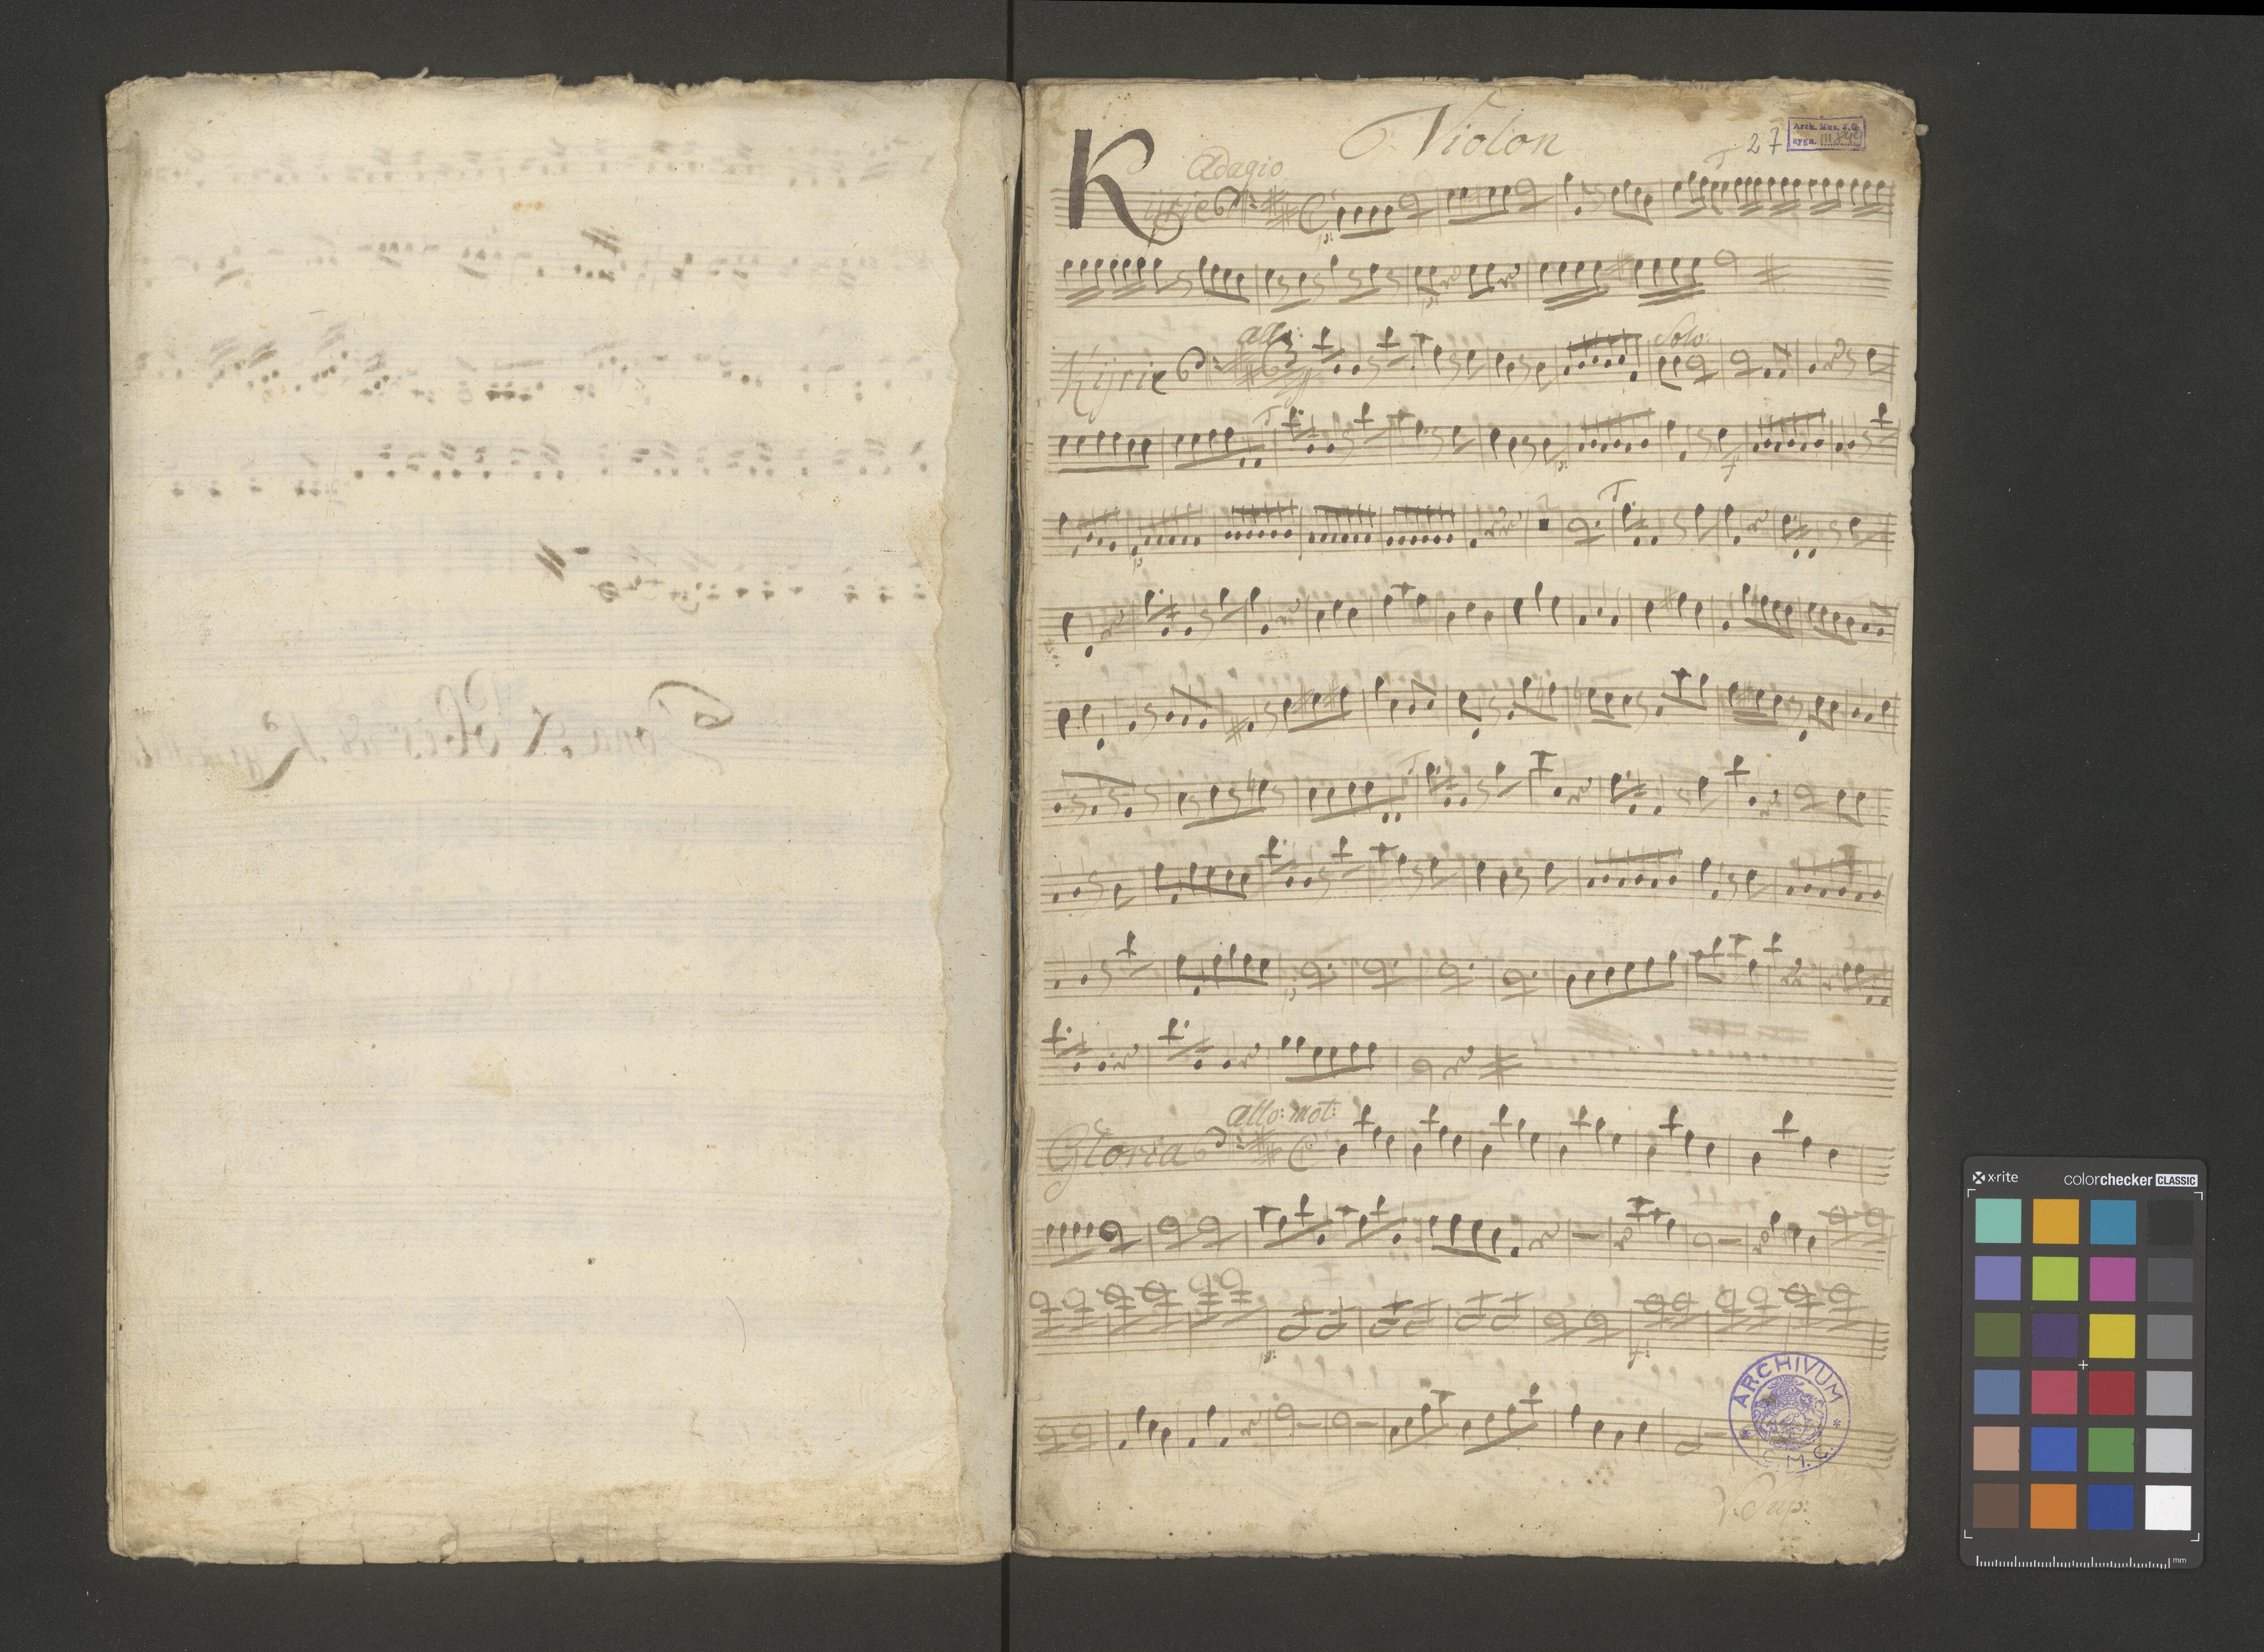 Violon
27
Arch. Mus. J. G.
sygn. III
Adagio
Kyrie
T
p:
p:
allo:
Solo:
Kyrie
T
p:
f
2
T
p
T
p
allo: mot:
Gloria
p:
f:
ARCHIVUM
C. M. C.
V: Sup:
x-rite
colorchecker CLASSIC
mm